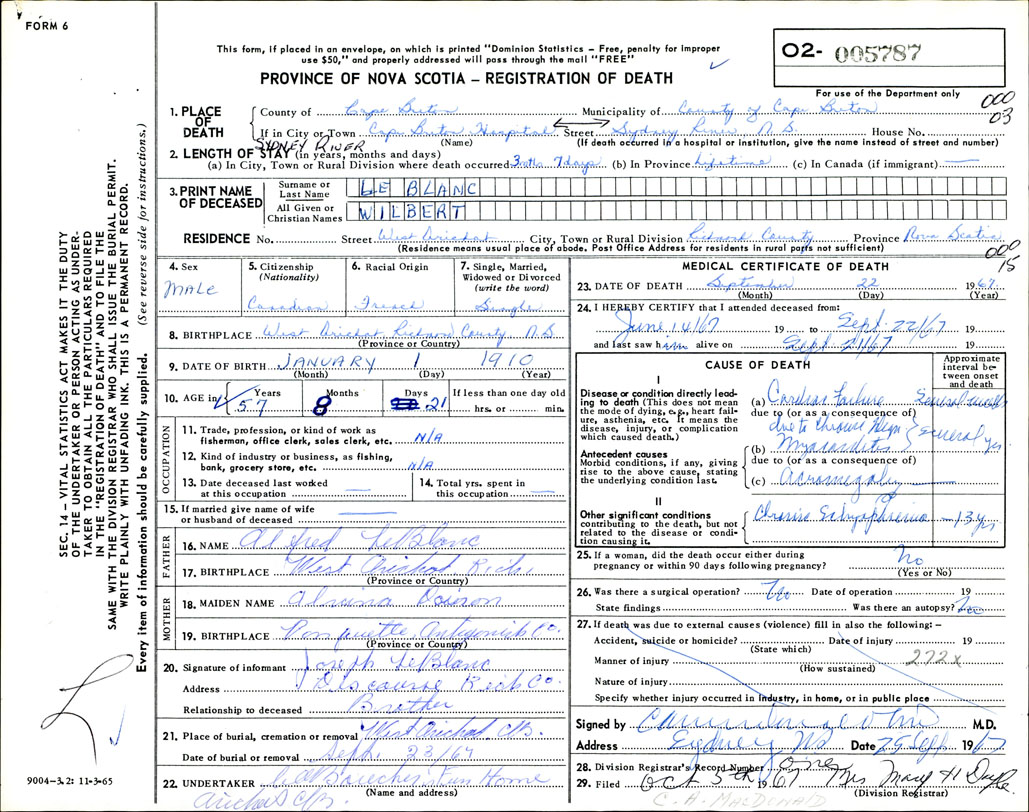 FORM 6
This form, if placed in an envelope, on which is printed "Dominion Statistics – Free, penalty for improper
use $50," and properly addressed will pass through the mail "FREE"
PROVINCE OF NOVA SCOTIA – REGISTRATION OF DEATH
02- 005787
For use of the Department only
000
03
1. PLACE OF DEATH
County of Cape Breton Municipality of County of Cape Breton
If in City or Town Cape Breton Hospital Street Sydney River N.S. House No.
(Name) (If death occurred in a hospital or institution, give the name instead of street and number)
SYDNEY RIVER
2. LENGTH OF STAY (in years, months and days)
(a) In City, Town or Rural Division where death occurred 3 mths 7 days (b) In Province Lifetime (c) In Canada (if immigrant) —
3. PRINT NAME OF DECEASED
Surname or Last Name LE BLANC
All Given or Christian Names WILBERT
RESIDENCE No. Street West Arichat City, Town or Rural Division Richmond County Province Nova Scotia
(Residence means usual place of abode. Post Office Address for residents in rural parts not sufficient)
000
15
4. Sex MALE
5. Citizenship (Nationality) Canadian
6. Racial Origin French
7. Single, Married, Widowed or Divorced (write the word) Single
8. BIRTHPLACE West Arichat Richmond County N.S.
(Province or Country)
9. DATE OF BIRTH JANUARY 1 1910
(Month) (Day) (Year)
10. AGE in Years 57 Months 8 Days 21 If less than one day old hrs. or min.
OCCUPATION
11. Trade, profession, or kind of work as fisherman, office clerk, sales clerk, etc. N/A
12. Kind of industry or business, as fishing, bank, grocery store, etc. N/A
13. Date deceased last worked at this occupation —
14. Total yrs. spent in this occupation —
15. If married give name of wife or husband of deceased —
FATHER
16. NAME Alfred LeBlanc
17. BIRTHPLACE West Arichat Rich.
(Province or Country)
MOTHER
18. MAIDEN NAME
19. BIRTHPLACE Pomquette Antigonish Co.
(Province or Country)
20. Signature of informant Joseph LeBlanc
Address Rich Co.
Relationship to deceased Brother
21. Place of burial, cremation or removal West Arichat C/B.
Date of burial or removal Sept. 23/67
22. UNDERTAKER Home
(Name and address)
Arichat C/B.
MEDICAL CERTIFICATE OF DEATH
23. DATE OF DEATH September 22 1967
(Month) (Day) (Year)
24. I HEREBY CERTIFY that I attended deceased from:
June 14/67 19 to Sept. 22/67 19
and last saw him alive on Sept. 21/67 19
CAUSE OF DEATH
Approximate interval between onset and death
I
Disease or condition directly leading to death (This does not mean the mode of dying, e.g., heart failure, asthenia, etc. It means the disease, injury, or complication which caused death.)
(a) Cardiac failure Several weeks
due to (or as a consequence of)
due to Chronic
(b) Myocarditis Several yrs
due to (or as a consequence of)
Antecedent causes
Morbid conditions, if any, giving rise to the above cause, stating the underlying condition last.
(c) Acromegaly
II
Other significant conditions contributing to the death, but not related to the disease or condition causing it.
Chronic Schizophrenia – 13 yrs
25. If a woman, did the death occur either during pregnancy or within 90 days following pregnancy? No
(Yes or No)
26. Was there a surgical operation? No Date of operation 19
State findings Was there an autopsy? No
27. If death was due to external causes (violence) fill in also the following: –
Accident, suicide or homicide? Date of injury 19
(State which)
Manner of injury 272x
(How sustained)
Nature of injury
Specify whether injury occurred in industry, in home, or in public place
Signed by M.D.
Address Sydney NS Date 25 Sept. 1967
28. Division Registrar's Record Number
29. Filed Oct 5th 1967 Mrs. Mary H
(Division Registrar)
C. H. MacDONALD
SEC. 14 – VITAL STATISTICS ACT MAKES IT THE DUTY
OF THE UNDERTAKER OR PERSON ACTING AS UNDER-
TAKER TO OBTAIN ALL THE PARTICULARS REQUIRED
IN THE "REGISTRATION OF DEATH" AND TO FILE THE
SAME WITH THE DIVISION REGISTRAR WHO SHALL ISSUE THE BURIAL PERMIT.
WRITE PLAINLY WITH UNFADING INK. THIS IS A PERMANENT RECORD.
Every item of information should be carefully supplied. (See reverse side for instructions.)
9004-3.2: 11-3-65